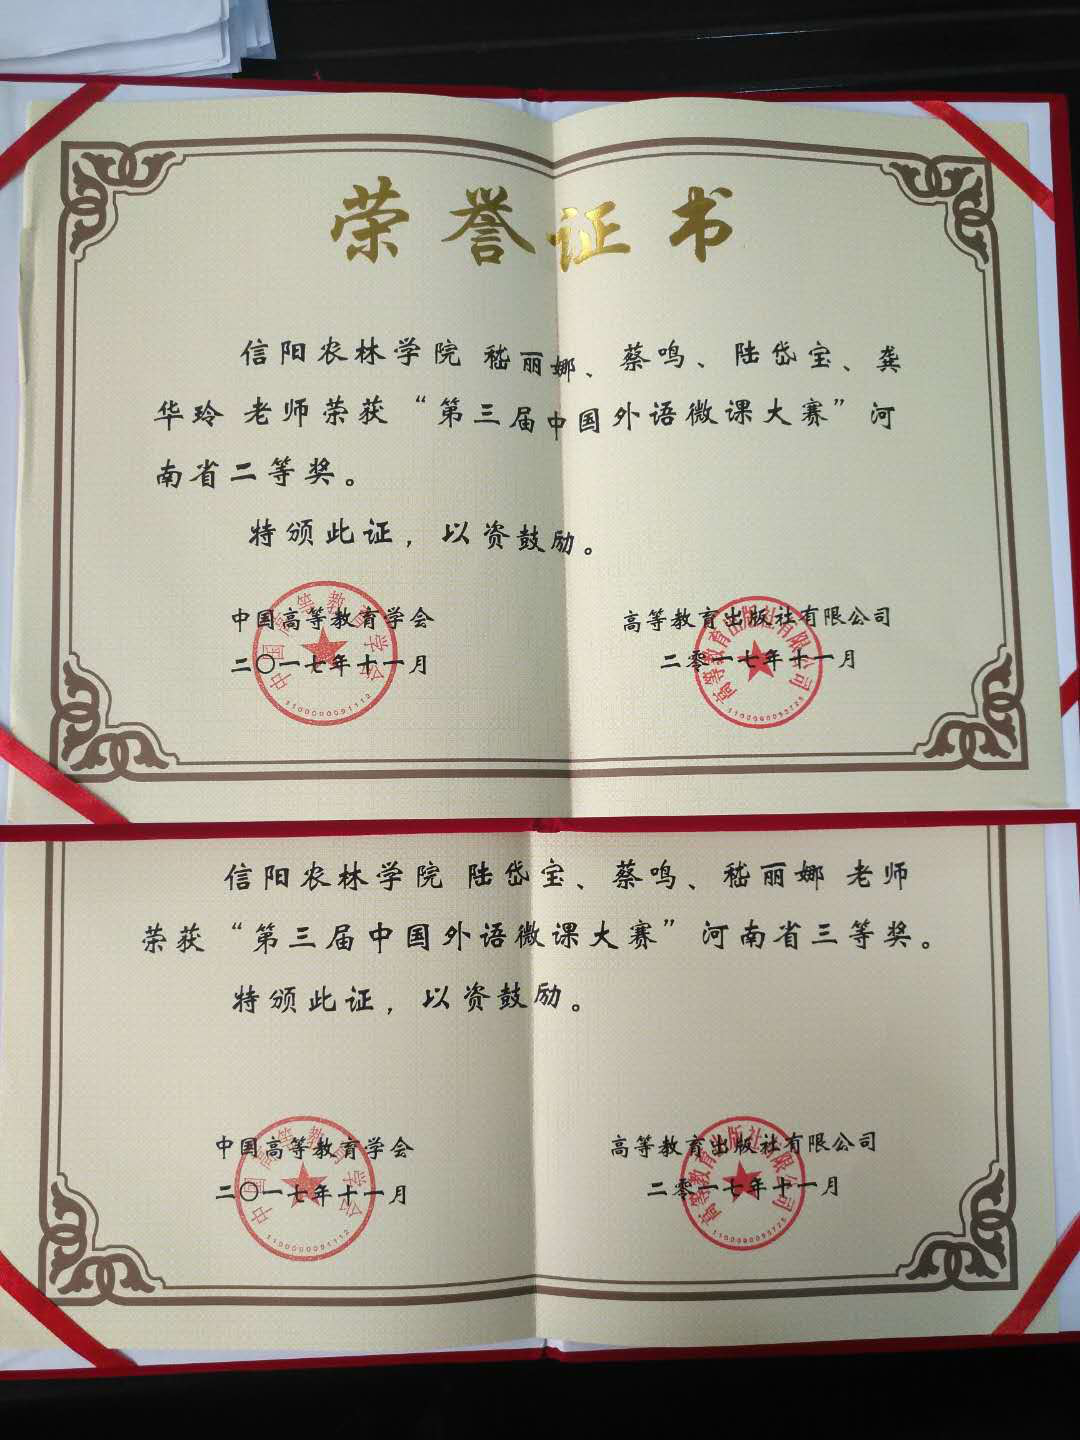 荣誉证书
信阳农林学院 嵇丽娜、蔡鸣、陆岱宝、龚
华玲 老师荣获“第三届中国外语微课大赛”河
南省二等奖。
特颁此证，以资鼓励。
中国高等教育学会
二〇一七年十一月
中国高等教育学会
高等教育出版社有限公司
二零一七年十一月
高等教育出版社有限公司
信阳农林学院 陆岱宝、蔡鸣、嵇丽娜 老师
荣获“第三届中国外语微课大赛”河南省三等奖。
特颁此证，以资鼓励。
中国高等教育学会
二〇一七年十一月
中国高等教育学会
高等教育出版社有限公司
二零一七年十一月
高等教育出版社有限公司